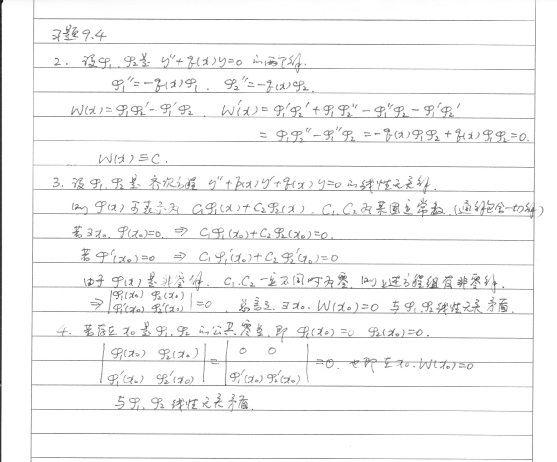 习题9.4
2. 设φ₁, φ₂是 y″+q(x)y=0 的两个解.
φ₁″=-q(x)φ₁, φ₂″=-q(x)φ₂.
W(x)=φ₁φ₂′-φ₁′φ₂, W′(x)=φ₁′φ₂′+φ₁φ₂″-φ₁″φ₂-φ₁′φ₂′
=φ₁φ₂″-φ₁″φ₂=-q(x)φ₁φ₂+q(x)φ₁φ₂=0.
W(x)≡C.
3. 设φ₁, φ₂是齐次方程 y″+p(x)y′+q(x)y=0 的线性无关解.
则φ(x)可表示为 C₁φ₁(x)+C₂φ₂(x), C₁,C₂为某固定常数.(通解包含一切解)
若∃x₀, φ(x₀)=0, ⇒ C₁φ₁(x₀)+C₂φ₂(x₀)=0.
若φ′(x₀)=0 ⇒ C₁φ₁′(x₀)+C₂φ₂′(x₀)=0
由于φ(x)是非零解, C₁,C₂一定不同时为零, 则上述方程组有非零解.
⇒ |φ₁(x₀) φ₂(x₀)|
|φ₁′(x₀) φ₂′(x₀)| =0, ∃x₀, W(x₀)=0 与φ₁,φ₂线性无关矛盾.
4. 若存在x₀是φ₁,φ₂的公共零点, 即φ₁(x₀)=0 φ₂(x₀)=0.
|φ₁(x₀) φ₂(x₀)| |0 0|
|φ₁′(x₀) φ₂′(x₀)| = |φ₁′(x₀) φ₂′(x₀)| =0. 也即在x₀, W(x₀)=0
与φ₁,φ₂线性无关矛盾.